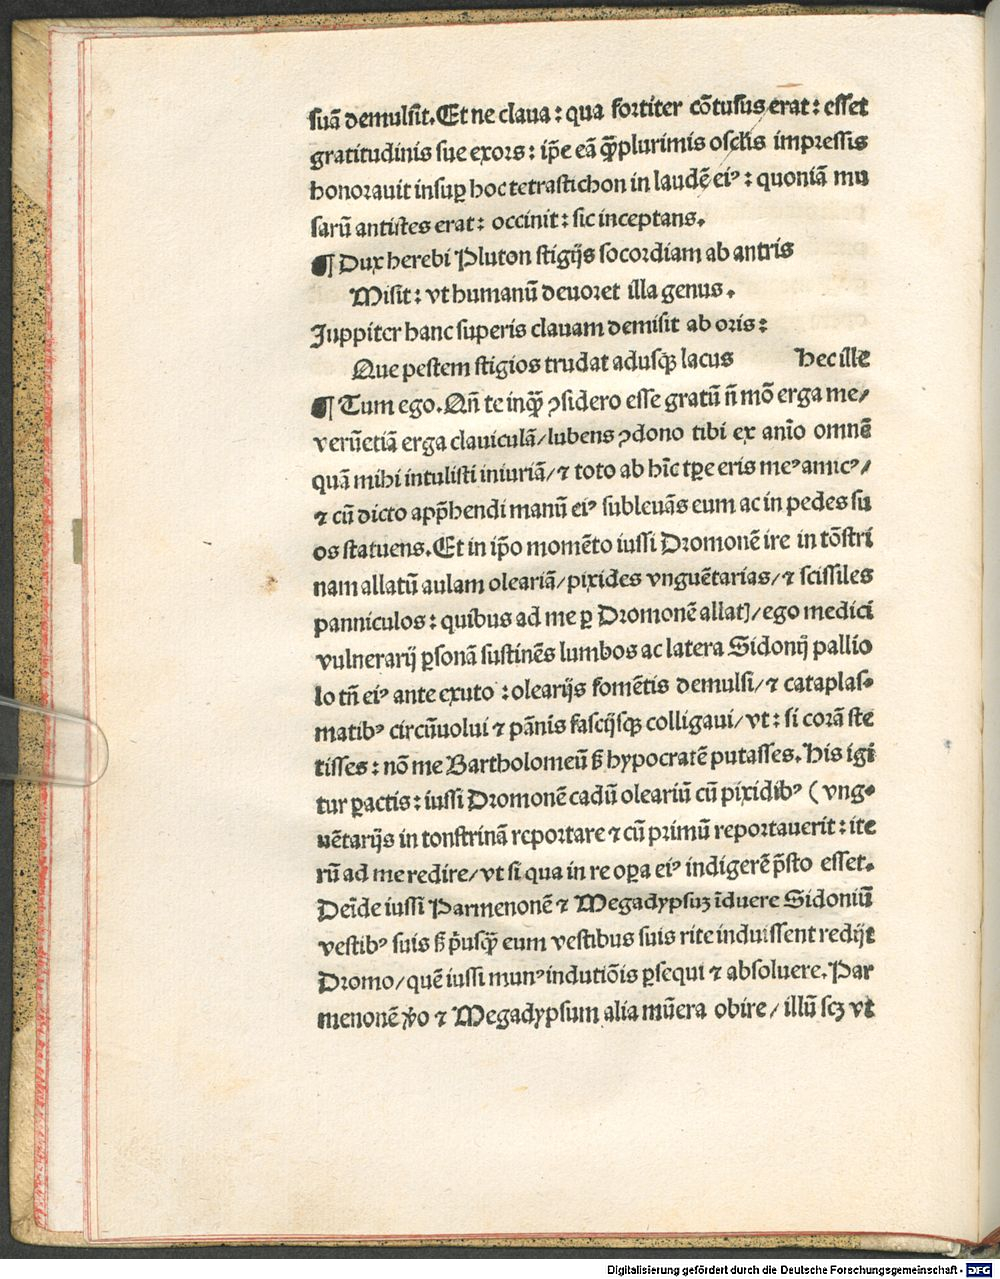 suã demulsit. Et ne claua : qua fortiter cõtusus erat : esset
gratitudinis sue exors : ip̃e eã q̃plurimis osclis impressis
honorauit insuꝑ hoc tetrastichon in laudẽ eiꝰ : quoniã mu
sarũ antistes erat : occinit : sic inceptans.
¶ Dux herebi Pluton stigijs socordiam ab antris
Misit : vt humanũ deuoret illa genus.
Juppiter hanc superis clauam demisit ab oris :
Que pestem stigios trudat adusqꝫ lacus hec ille
¶ Tum ego. Añ te inq̃ ꝯsidero esse gratũ ñ mõ erga me/
verũetiã erga clauiculã/lubens ꝯdono tibi ex anĩo omnẽ
quã mihi intulisti iniuriã/ ⁊ toto ab hĩc tꝑe eris meꝰ amicꝰ/
⁊ cũ dicto app̃hendi manũ eiꝰ subleuãs eum ac in pedes su
os statuens. Et in ip̃o momẽto iussi Dromonẽ ire in tõstri
nam allatũ aulam oleariã/pixides vnguẽtarias/ ⁊ scissiles
panniculos : quibus ad me ꝑ Dromonẽ allatꝭ/ego medici
vulnerarij ꝑsonã sustinẽs lumbos ac latera Sidonij pallio
lo tñ eiꝰ ante exuto : olearijs fomẽtis demulsi/ ⁊ cataplas-
matibꝰ circũuolui ⁊ pãnis fascijsqꝫ colligaui/ vt : si corã ste
tisses : nõ me Bartholomeũ ẞ hypocratẽ putasses. His igi
tur ꝑactis : iussi Dromonẽ cadũ oleariũ cũ pixidibꝰ ( vng-
uẽtarijs in tonstrinã reportare ⁊ cũ primũ reportauerit : ite
rũ ad me redire/ vt si qua in re oꝑa eiꝰ indigerẽ p̃sto esset.
Deĩde iussi Parmenonẽ ⁊ Megadypsuꝫ ĩduere Sidoniũ
vestibꝰ suis ẞ p̃usq̃ eum vestibus suis rite induissent redijt
Dromo/ quẽ iussi munꝰ indutiõis ꝑsequi ⁊ absoluere. Par
menonẽ ꝟo ⁊ Megadypsum alia mũera obire/ illũ scꝫ vt
Digitalisierung gefördert durch die Deutsche Forschungsgemeinschaft - DFG